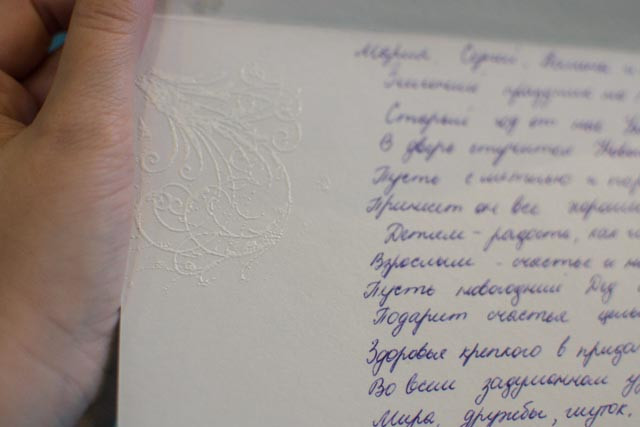 Мария, Сергей, Полина и
праздник на п
Старый год от нас
В дверь стучится
Пусть с метелью и
Принесёт он все хороши
Детям - радость, как
Взрослым - счастье и
Пусть новогодний Дед
Подарит счастья целы
Здоровья крепкого в прида
Во всем задуманном у
Мира, дружбы, шуток,